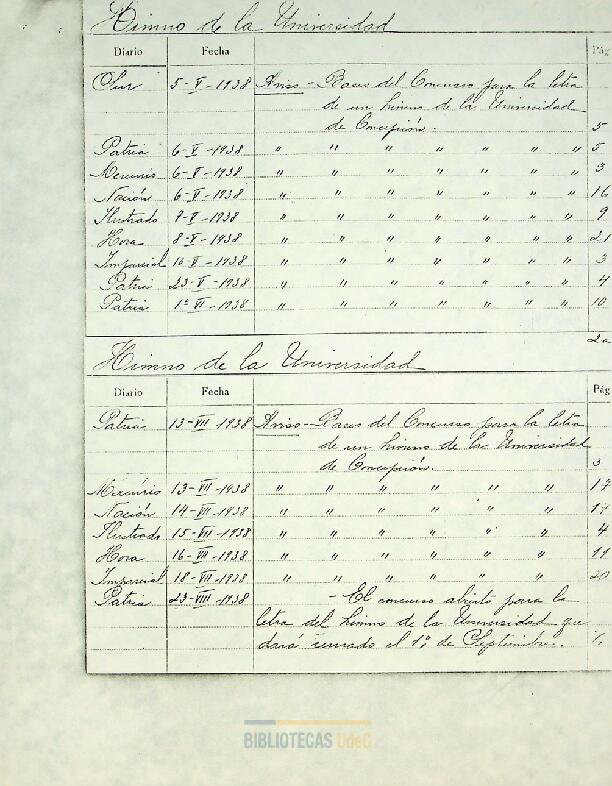 Himno de la Universidad
Diario Fecha Pág
Sur 5-V-1938 Aviso - Bases del Concurso para la letra
de un himno de la Universidad
de Concepción. 5
Patria 6-V-1938 " " " " " " " 5
Mercurio 6-V-1938 " " " " " " " 3
Nación 6-V-1938 " " " " " " " 16
Ilustrado 7-V-1938 " " " " " " " 9
Hora 8-V-1938 " " " " " " " 21
Imparcial 10-V-1938 " " " " " " " 3
Patria 23-V-1938 " " " " " " " 4
Patria 1º-VI-1938 " " " " " " " 10
Himno de la Universidad
Diario Fecha Pág
Patria 13-VII-1938 Aviso - Bases del Concurso para la letra
de un himno de la Universidad
de Concepción. 3
Mercurio 13-VII-1938 " " " " " " 17
Nación 14-VII-1938 " " " " " "
Ilustrado 15-VII-1938 " " " " " " 4
Hora 16-VII-1938 " " " " " "
Imparcial 18-VII-1938 " " " " " " 20
Patria 23-VIII-1938 - El concurso abierto para la
letra del himno de la Universidad que
dará cerrado el 1º de Septiembre.
BIBLIOTECAS UdeC